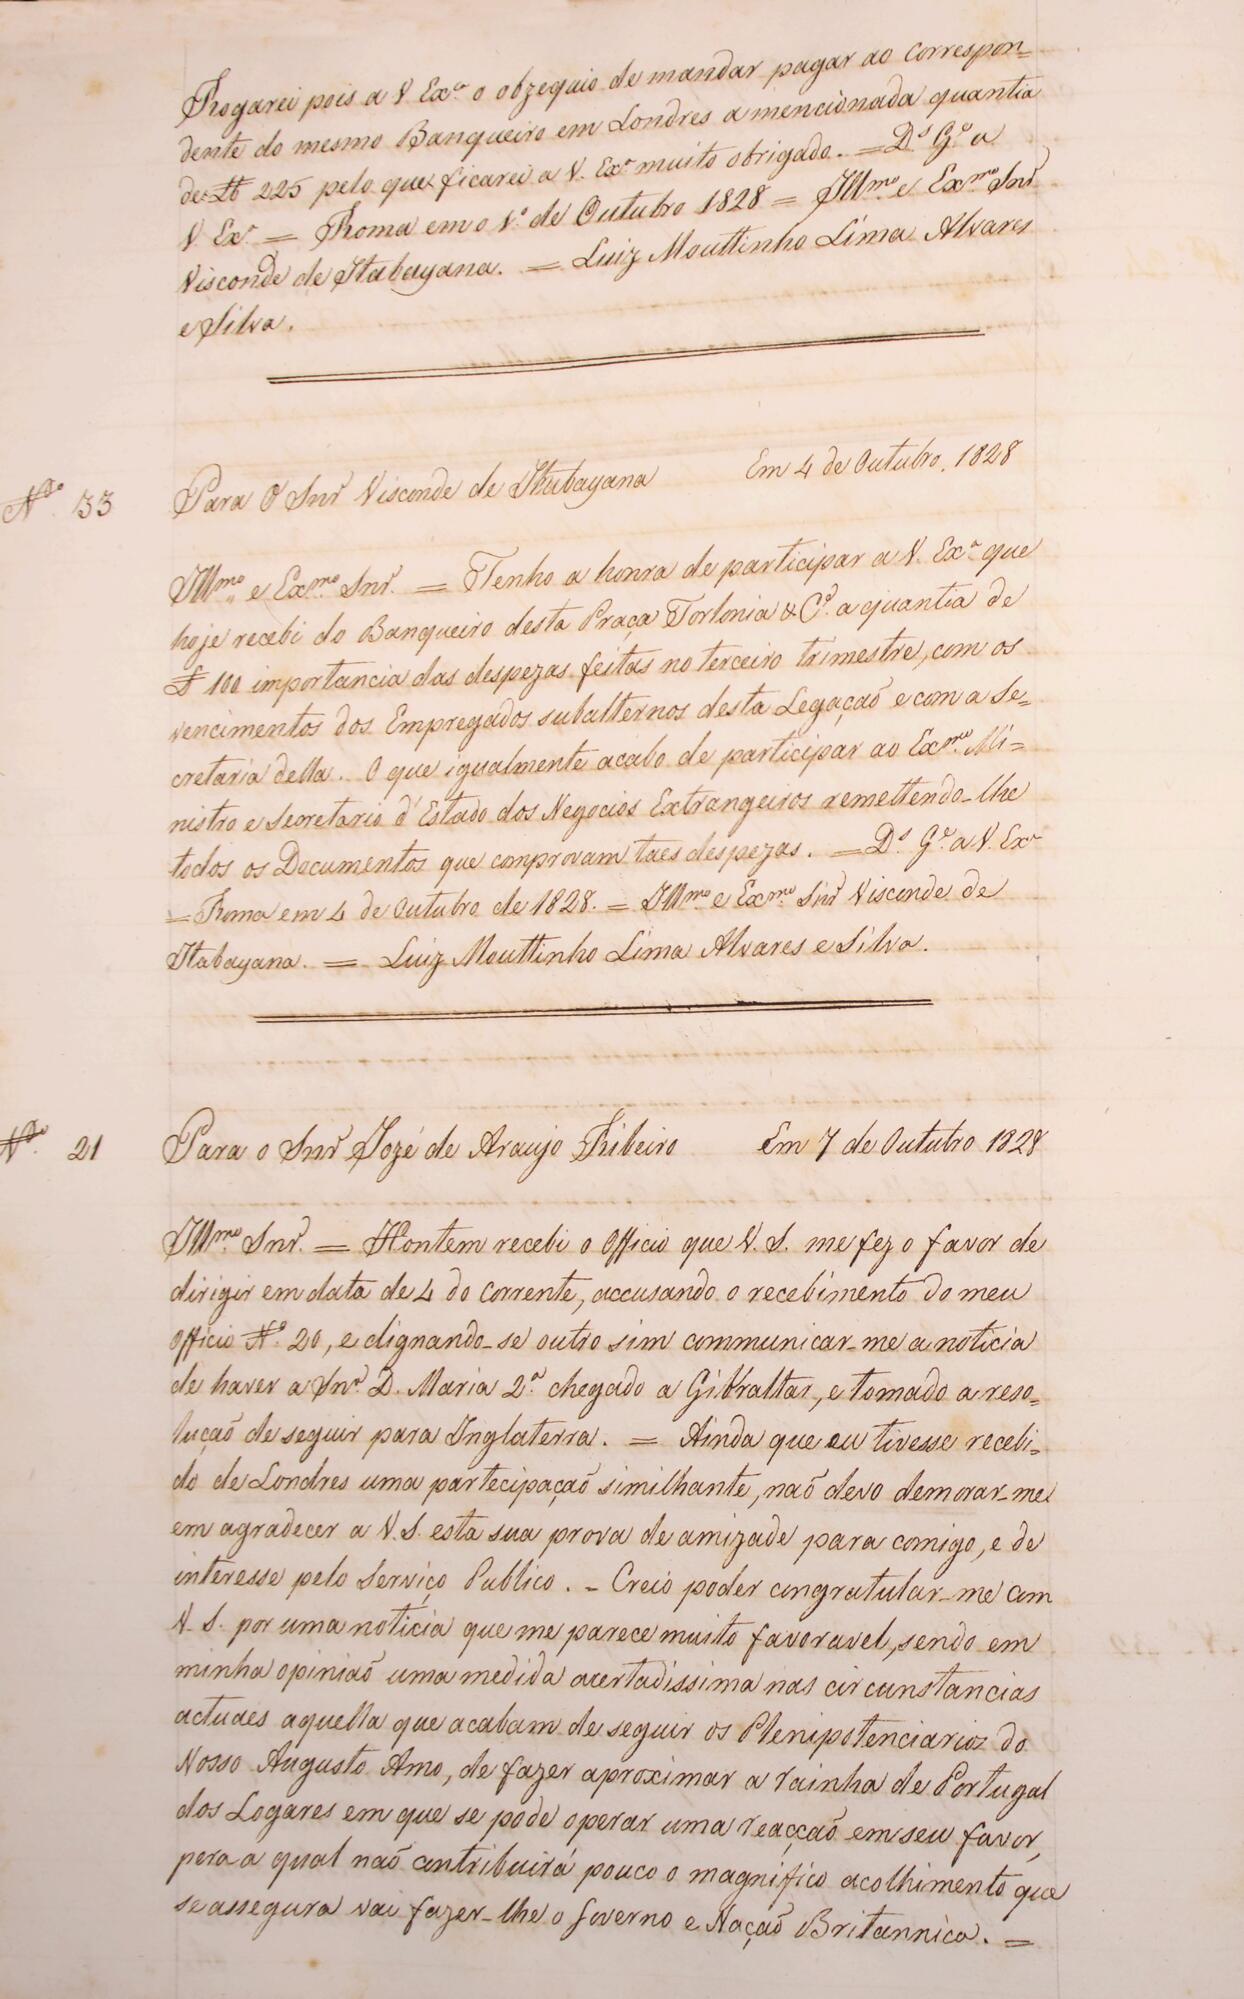 Rogarei pois a V Exª o obzequio de mandar pagar ao Correspon=
dente do mesmo Banqueiro em Londres a mencionada quantia
de £ 225 pelo que ficarei a V. Exª muito obrigado. = Dˢ Gᵉ a
V Exª = Roma em o 1º de Outubro 1828 = Illmº e Exmº Snr
Visconde de Itabayana. = Luiz Mouttinho Lima Alvares
e Silva.
Nº 33
Para O Snr Visconde de Itabayana Em 4 de Outubro. 1828
Illmº e Exmº Snr. = Tenho a honra de participar a V. Exª que
hoje recebi do Banqueiro desta Praça Torlonia & Cª. a quantia de
£ 100 importancia das despezas feitas no terceiro trimestre, com os
vencimentos dos Empregados subalternos desta Legaçaõ e com a Se=
cretaria della. O que igualmente acabo de participar ao Exmº Mi=
nistro e Secretario d'Estado dos Negocios Extrangeiros remettendo-lhe
todos os Documentos que comprovam taes despezas. = Dˢ Gᵉ a V. Exª
= Roma em 4 de Outubro de 1828. = Illmº e Exmº Snr Visconde de
Itabayana. = Luiz Mouttinho Lima Alvares e Silva.
Nº 21
Para o Snr Jozé de Araujo Ribeiro Em 7 de Outubro 1828
Illmº Snr. = Hontem recebi o Officio que V. S. me fez o favor de
dirigir em data de 4 do Corrente, accusando o recebimento do meu
Officio Nº 20, e dignando-se outro sim communicar-me a noticia
de haver a Snrª D. Maria 2ª chegado a Gibraltar, e tomado a reso=
luçaõ de seguir para Inglaterra. = Ainda que eu tivesse recebi=
do de Londres uma partecipaçaõ similhante, naõ devo demorar-me
em agradecer a V. S. esta sua prova de amizade para comigo, e de
interesse pelo Serviço Publico. - Creio poder congratular-me com
V. S. por uma noticia que me parece muito favoravel, sendo em
minha opiniaõ uma medida acertadissima nas circunstancias
actuaes aquella que acabam de seguir os Plenipotenciarios do
Nosso Augusto Amo, de fazer aproximar a rainha de Portugal
dos Logares em que se pode operar uma reacçaõ em seu favor,
pera a qual naõ contribuirá pouco o magnifico acolhimento que
se assegura vai fazer-lhe o Governo e Naçaõ Britannica. =